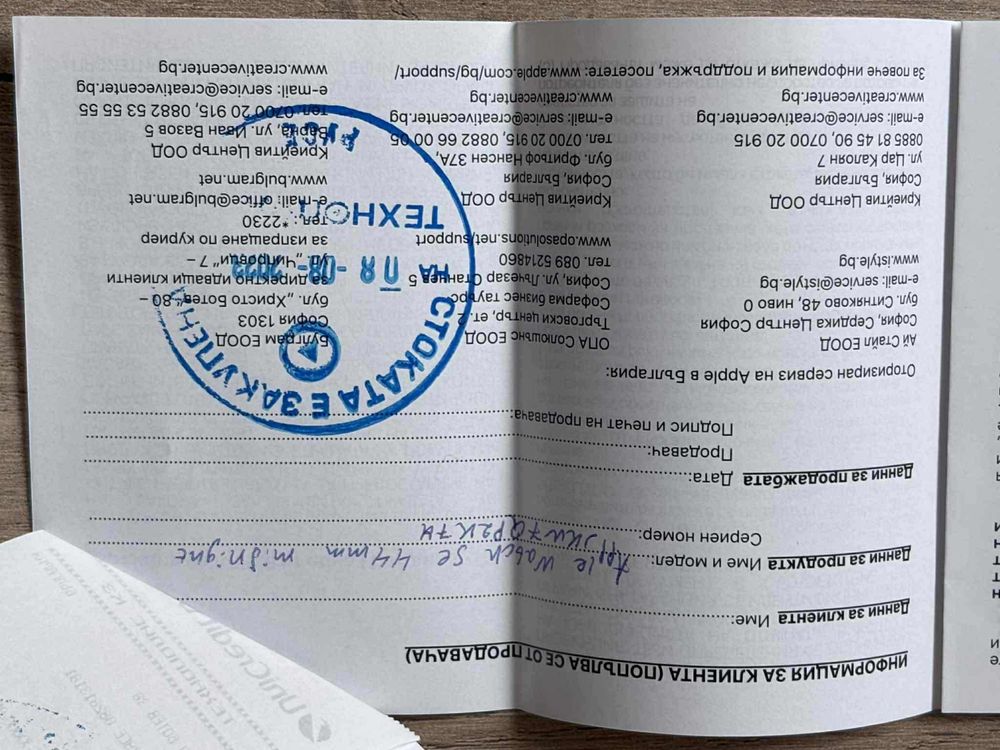 ИНФОРМАЦИЯ ЗА КЛИЕНТА (ПОПЪЛВА СЕ ОТ ПРОДАВАЧА)
Данни за клиента Име:
Данни за продукта Име и модел: Apple Watch SE 44mm midnight
Сериен номер
Данни за продажбата Дата:
Продавач:
Подпис и печат на продавача:
Оторизиран сервиз на Apple в България:
Ай Стайл ЕООД
София, Сердика Център София
бул. Ситняково 48, ниво 0
e-mail: service@istyle.bg
www.istyle.bg
Криейтив Център ООД
София, България
ул. Цар Калоян 7
0885 81 45 90, 0700 20 915
e-mail: service@creativecenter.bg
www.creativecenter.bg
ОПА Солюшънс ЕООД
Търговски център, ет. 2
Софарма бизнес тауърс
София, ул. Лъчезар Станчев 5
тел. 089 5214860
www.opasolutions.net/support
Криейтив Център ООД
София, България
бул. Фритьоф Нансен 37А,
тел. 0700 20 915, 0882 66 00 05
e-mail: service@creativecenter.bg
www.creativecenter.bg
Булграм ЕООД
София 1303
бул. „Христо Ботев“ 80 –
за директно идващи клиенти
ул. „Чипровци“ 7 –
за изпращане по куриер
тел.: *2230
e-mail: office@bulgram.net
www.bulgram.net
Криейтив Център ООД
Варна, ул. Иван Вазов 5
тел. 0700 20 915, 0882 53 55 55
e-mail: service@creativecenter.bg
www.creativecenter.bg
За повече информация и поддръжка, посетете: www.apple.com/bg/support/
СТОКАТА Е ЗАКУПЕНА
НА
08-2022
ТЕХНОП
РУСЕ